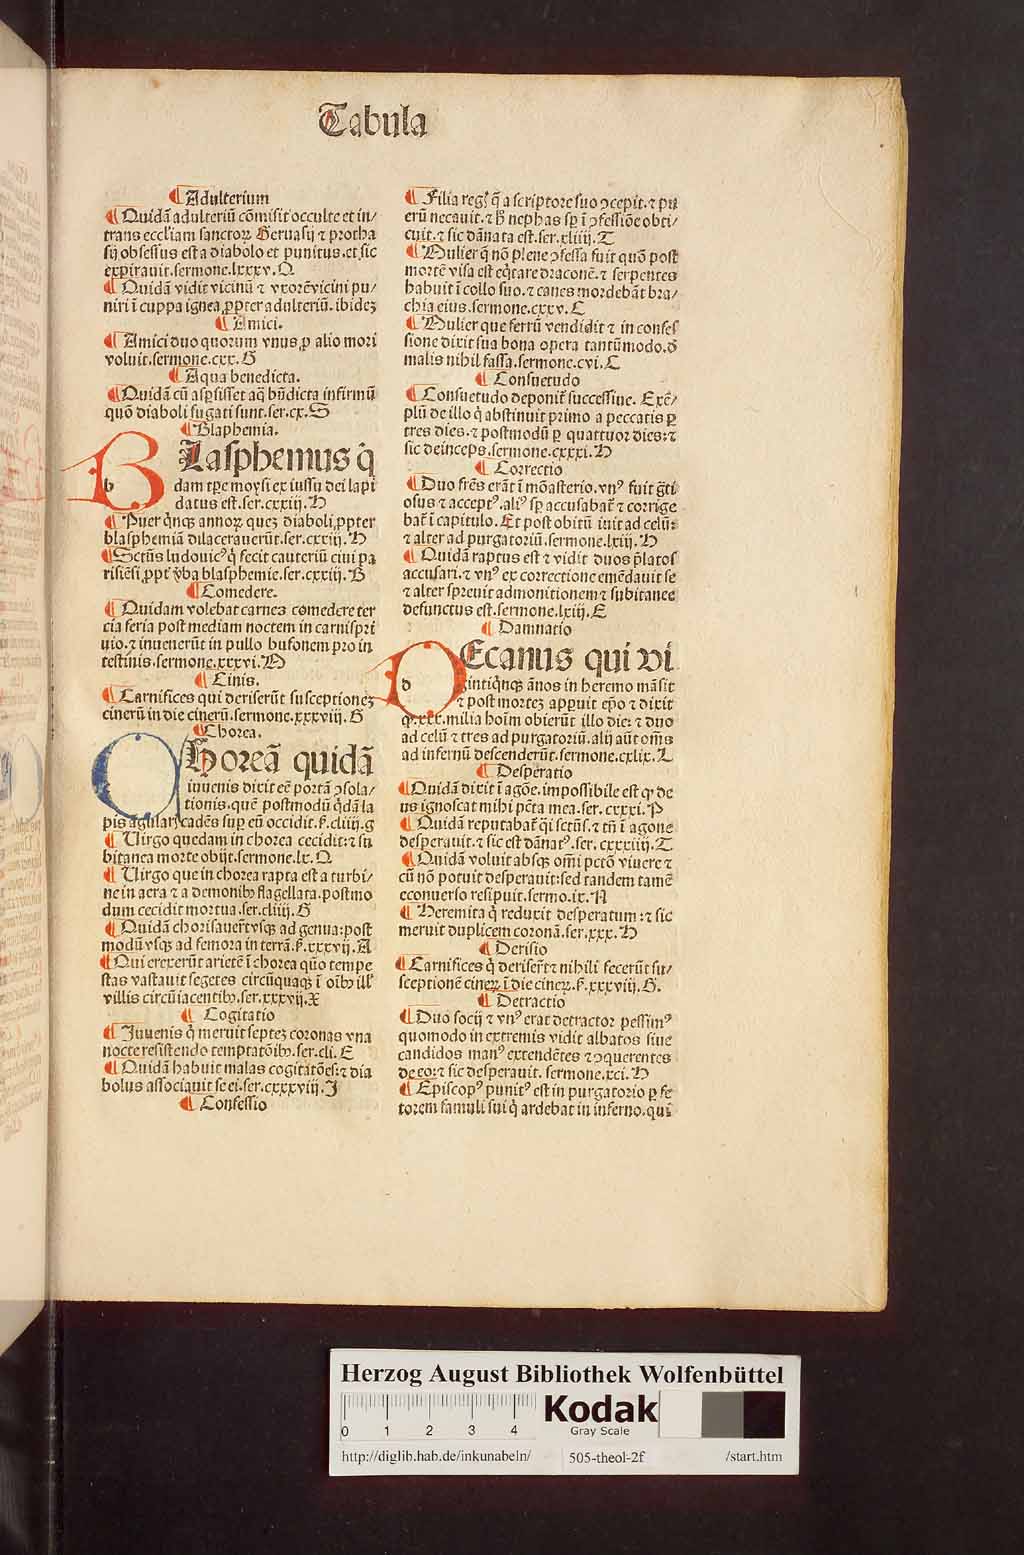 Tabula
¶ Adulterium
¶ Quidã adulteriũ cõmisit occulte et in/
trans eccl'iam sanctoꝝ Geruasij ⁊ protha
sij obsessus est a diabolo et punitus. et sic
expirauit. sermone. lxxxv. Q
¶ Quidã vidit vicinũ ⁊ vxorẽ vicini pu/
niri ĩ cuppa ignea ꝓpter adulteriũ. ibideꝫ
¶ Amici.
¶ Amici duo quorum vnus ꝓ alio mori
voluit. sermone. cxx. G
¶ Aqua benedicta.
¶ Quidã cũ asꝑsisset aq̃ bñdicta infirmũ
quõ diaboli fugati sunt. ser. cx. S
¶ Blaphemia.
b
Blasphemus q̇
dam tꝑe moysi ex iussu dei lapi
datus est. ser. cxxiij. H
¶ Puer q̇nqꝫ annoꝝ queꝫ diaboli ꝓpter
blasphemiã dilacerauerũt. ser. cxxiij. H
¶ Sctũs ludouicꝰ q̇ fecit cauteriũ ciui pa
risiẽsi ꝓpt' v̾ba blasphemie. ser. cxxiij. B
¶ Comedere.
¶ Quidam volebat carnes comedere ter
cia feria post mediam noctem in carnispri
uio. ⁊ inuenerũt in pullo bufonem pro in
testinis. sermone. xxxvi. D
¶ Cinis.
¶ Carnifices qui deriserũt susceptioneꝫ
cinerũ in die cinerũ. sermone. xxxviij. G
¶ Chorea.
Choreã quidã
iuuenis dixit eẽ portã ꝯsola/
tionis. quẽ postmodũ q̇dã la
pis agularis cadẽs suꝑ eũ occidit. ẜ. cliiij. g
¶ Uirgo quedam in chorea cecidit: ⁊ su
bitanea morte obijt. sermone. lx. Q
¶ Uirgo que in chorea rapta est a turbi/
ne in aera ⁊ a demonibꝫ flagellata. postmo
dum cecidit mortua. ser. cliiij. G
¶ Quidã chorisauer̃t vsqꝫ ad genua: post
modũ vsqꝫ ad femora in terrã. ẜ. xxxvij. A
¶ Qui erexerũt arietẽ ĩ chorea qũo tempe
stas vastauit segetes circũquaqꝫ ĩ oĩbꝫ ill'
villis circũiacentibꝫ. ser. xxxvij. X
¶ Cogitatio
¶ Juuenis q̇ meruit septeꝫ coronas vna
nocte resistendo temptatõibꝫ. ser. cli. E
¶ Quidã habuit malas cogitatõẽs: ⁊ dia
bolus associauit se ei. ser. cxxxviij. J
¶ Confessio
¶ Filia regꝭ q̃ a scriptore suo ꝯcepit. ⁊ pu
erũ necauit. ⁊ h̾ nephas sꝑ ĩ ꝯfessiõe obti/
cuit. ⁊ sic dãnata est. ser. xliiij. T
¶ Mulier q̃ nõ plene ꝯfessa fuit quõ post
mortẽ visa est eq̇tare draconẽ. ⁊ serpentes
habuit ĩ collo suo. ⁊ canes mordebãt bra/
chia eius. sermone. cxxv. C
¶ Mulier que ferrũ vendidit ⁊ in confes
sione dixit sua bona opera tantũmodo. ď
malis nihil fassa. sermone. cvi. C
¶ Consuetudo
¶ Consuetudo deponit̾ successiue. Exẽ/
plũ de illo q̇ abstinuit primo a peccatis ꝑ
tres dies. ⁊ postmodũ ꝑ quattuor dies: ⁊
sic deinceps. sermone. cxxxi. H
¶ Correctio
¶ Duo fr̃es erãt ĩ mõasterio. vnꝰ fuit g̃ti
osus ⁊ acceptꝰ. aliꝰ sꝑ accusabat̾ ⁊ corrige
bat̾ ĩ capitulo. Et post obitũ iuit ad celũ:
⁊ alter ad purgatoriũ. sermone. lxiij. H
¶ Quidã raptus est ⁊ vidit duos p̃latos
accusari. ⁊ vnꝰ ex correctione emẽdauit se
⁊ alter spreuit admonitionem ⁊ subitanee
defunctus est. sermone. lxiij. E
¶ Damnatio
d
Decanus qui vi
gintiq̇nqꝫ ãnos in heremo mãsit
⁊ post morteꝫ apꝑuit ep̃o ⁊ dixit
ꝙ. xxx. milia hoĩm obierũt illo die: ⁊ duo
ad celũ ⁊ tres ad purgatoriũ. alij aũt om̃s
ad infernũ descenderũt. sermone. cxlix. L
¶ Desperatio
¶ Quidã dixit ĩ agõe. impossibile est ꝙ de
us ignoscat mihi pc̃ta mea. ser. cxxxi. P
¶ Quidã reputabat̾ q̇i sctũs. ⁊ tñ ĩ agone
desperauit. ⁊ sic est dãnatꝰ. ser. cxxxiiij. T
¶ Quidã voluit absqꝫ om̃i pctõ viuere ⁊
cũ nõ potuit desperauit: sed tandem tamẽ
econuerso resipuit. sermo. ix. N
¶ Heremita q̇ reduxit desperatum: ⁊ sic
meruit duplicem coronã. ser. xxx. H
¶ Derisio
¶ Carnifices q̇ deriser̃t ⁊ nihili fecerũt su/
sceptionẽ cineꝝ ĩ die cineꝝ. ẜ. xxxviij. G.
¶ Detractio
¶ Duo socij ⁊ vnꝰ erat detractor pessimꝰ
quomodo in extremis vidit albatos siue
candidos manꝰ extendẽtes ⁊ ꝯquerentes
de eo: ⁊ sic desperauit. sermone. xci. H
¶ Episcopꝰ punitꝰ est in purgatorio ꝑ fe
torem famuli sui q̇ ardebat in inferno. qui
Herzog August Bibliothek Wolfenbüttel
0 1 2 3 4
Kodak
Gray Scale
http://diglib.hab.de/inkunabeln/ 505-theol-2f /start.htm